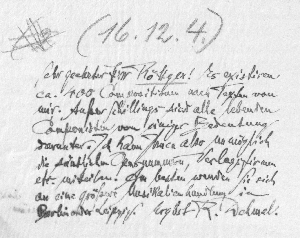 (16.12.4.)
Sehr geehrter Herr Röttger! Es existiren
ca. 100 Compositionen nach Texten von
mir. Außer Schillings sind alle lebenden
Componisten von einiger Bedeutung
darunter. Ich kann Ihnen also unmöglich
die sämtlichen Personennamen, Verlagsfirmen
etc. mitteilen. Am besten wenden Sie sich
an eine größere Musikalienhandlung in
Berlin oder Leipzig. R. Dehmel.